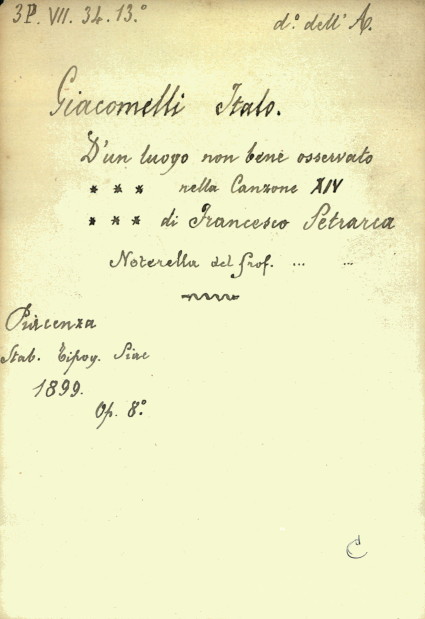 3P. VII. 34. 13.° d.° dell' A.
Giacomelli Italo.
D'un luogo non bene osservato
* * * nella Canzone XIV
* * * di Francesco Petrarca
Noterella del prof. ... ...
Piacenza
Stab. Tipog. Piac
1899.
Op. 8.°